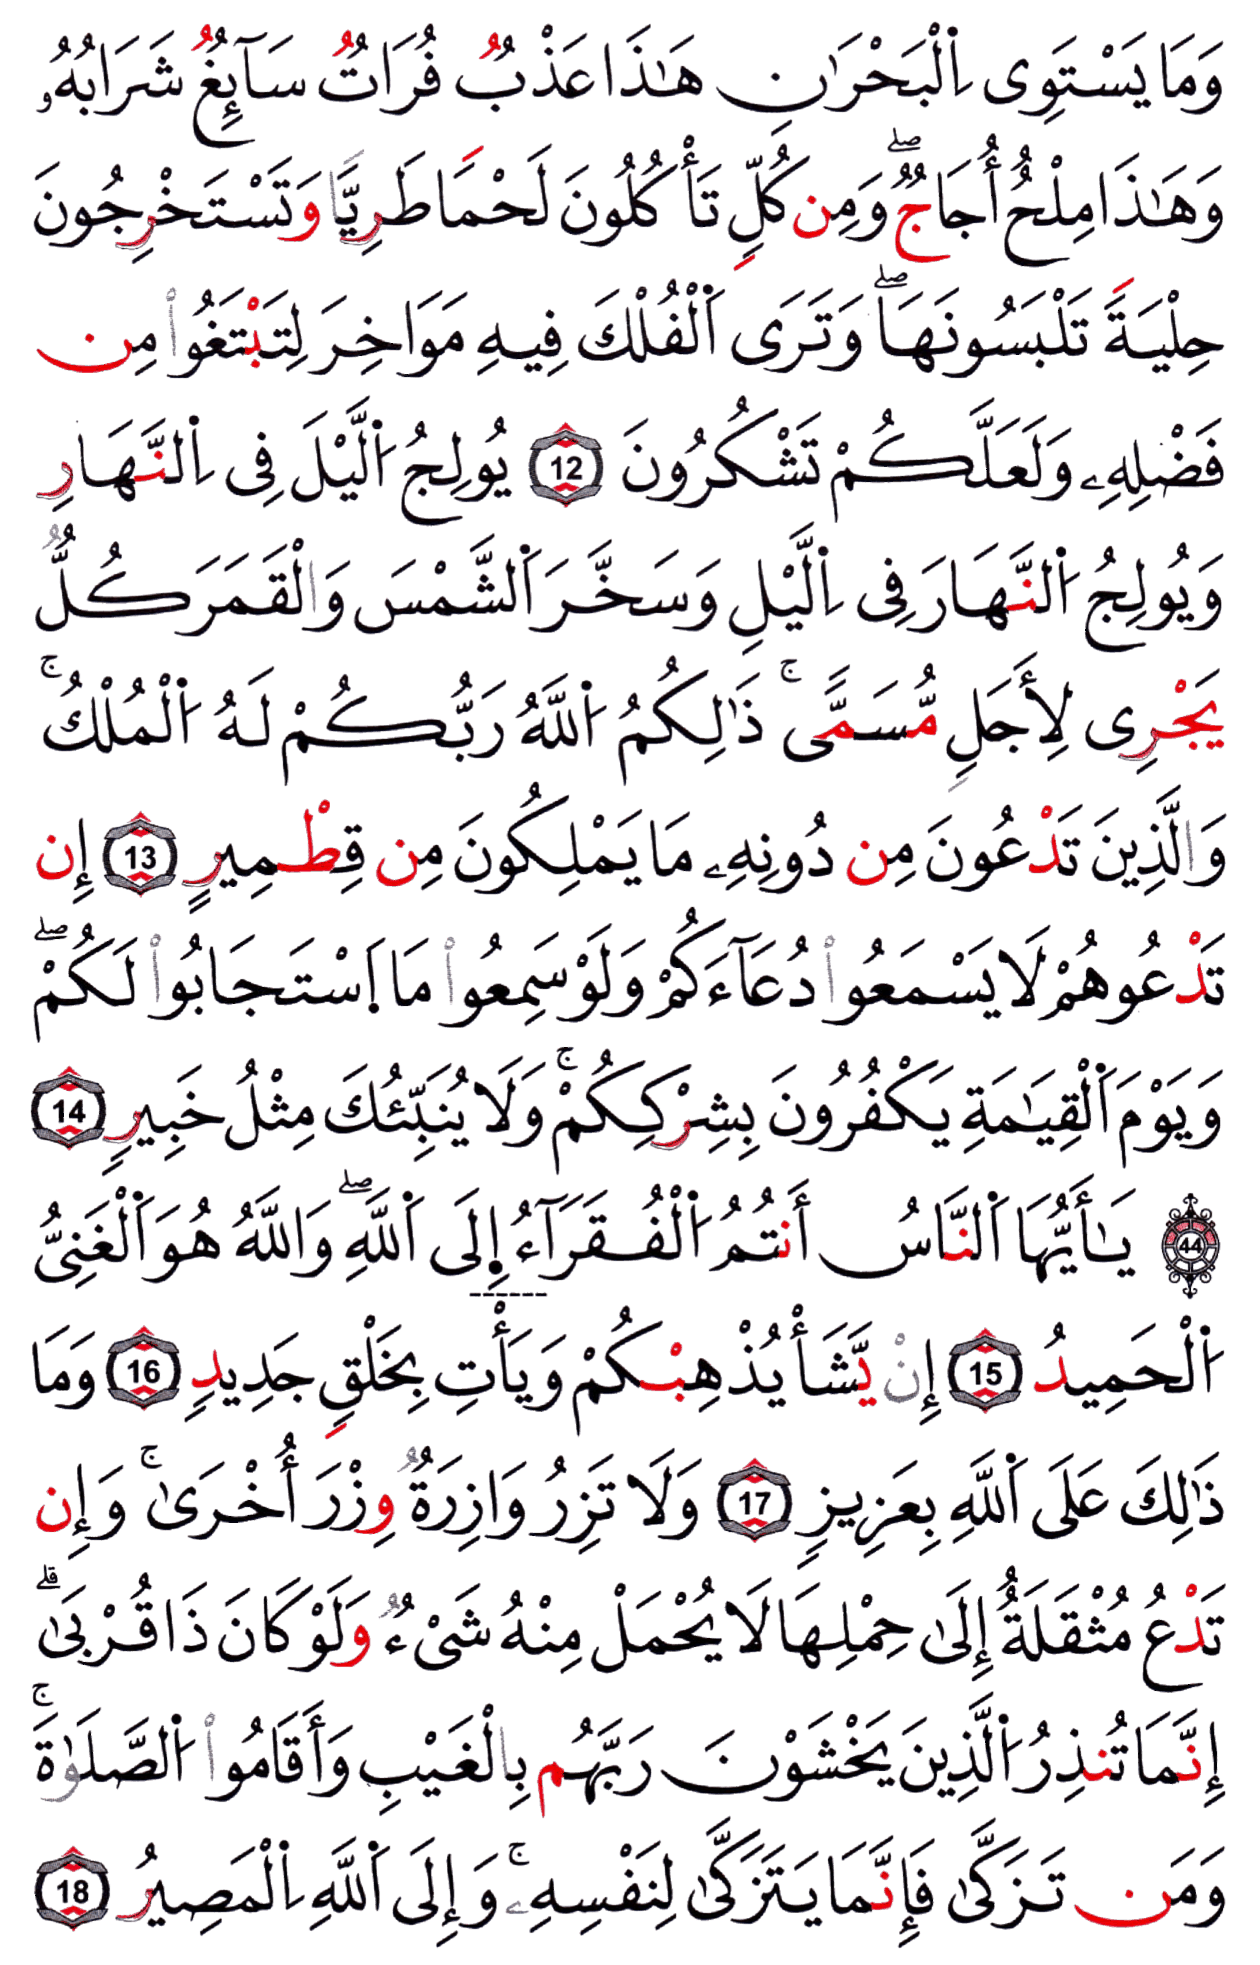 وَمَا يَسْتَوِى اِ۬لْبَحْرَٰنِ هَٰذَا عَذْبٌ فُرَاتٌ سَآئِغٌ شَرَابُهُۥ
وَهَٰذَا مِلْحٌ أُجَاجٌۖ وَمِن كُلٍّ تَأْكُلُونَ لَحْمًا طَرِيًّا وَتَسْتَخْرِجُونَ
حِلْيَةً تَلْبَسُونَهَاۖ وَتَرَى اَ۬لْفُلْكَ فِيهِ مَوَاخِرَ لِتَبْتَغُوا۟ مِن
فَضْلِهِۦ وَلَعَلَّكُمْ تَشْكُرُونَ 12 يُولِجُ اُ۬لَّيْلَ فِى اِ۬لنَّهَارِ
وَيُولِجُ اُ۬لنَّهَارَ فِى اِ۬لَّيْلِ وَسَخَّرَ اَ۬لشَّمْسَ وَالْقَمَرَ كُلٌّ
يَجْرِى لِأَجَلٍ مُّسَمًّىۚ ذَٰلِكُمُ اُ۬للَّهُ رَبُّكُمْ لَهُ اُ۬لْمُلْكُۚ
وَالَّذِينَ تَدْعُونَ مِن دُونِهِۦ مَا يَمْلِكُونَ مِن قِطْمِيرٍ 13 إِن
تَدْعُوهُمْ لَا يَسْمَعُوا۟ دُعَآءَكُمْ وَلَوْ سَمِعُوا۟ مَا اَ۪سْتَجَابُوا۟ لَكُمْۖ
وَيَوْمَ اَ۬لْقِيَٰمَةِ يَكْفُرُونَ بِشِرْكِكُمْۚ وَلَا يُنَبِّئُكَ مِثْلُ خَبِيرٍ 14
44 يَٰأَيُّهَا اَ۬لنَّاسُ أَنتُمُ اُ۬لْفُقَرَآءُ اِ۪لَى اَ۬للَّهِۖ وَاللَّهُ هُوَ اَ۬لْغَنِىُّ
اُ۬لْحَمِيدُ 15 إِنْ يَّشَأْ يُذْهِبْكُمْ وَيَأْتِ بِخَلْقٍ جَدِيدٍ 16 وَمَا
ذَٰلِكَ عَلَى اَ۬للَّهِ بِعَزِيزٍ 17 وَلَا تَزِرُ وَازِرَةٌ وِزْرَ أُخْرَىٰۚ وَإِن
تَدْعُ مُثْقَلَةٌ إِلَىٰ حِمْلِهَا لَا يُحْمَلْ مِنْهُ شَىْءٌ وَلَوْ كَانَ ذَا قُرْبَىٰۗ
إِنَّمَا تُنذِرُ اُ۬لَّذِينَ يَخْشَوْنَ رَبَّهُم بِالْغَيْبِ وَأَقَامُوا۟ اُ۬لصَّلَوٰةَۚ
وَمَن تَزَكَّىٰ فَإِنَّمَا يَتَزَكَّىٰ لِنَفْسِهِۦۚ وَإِلَى اَ۬للَّهِ اِ۬لْمَصِيرُ 18